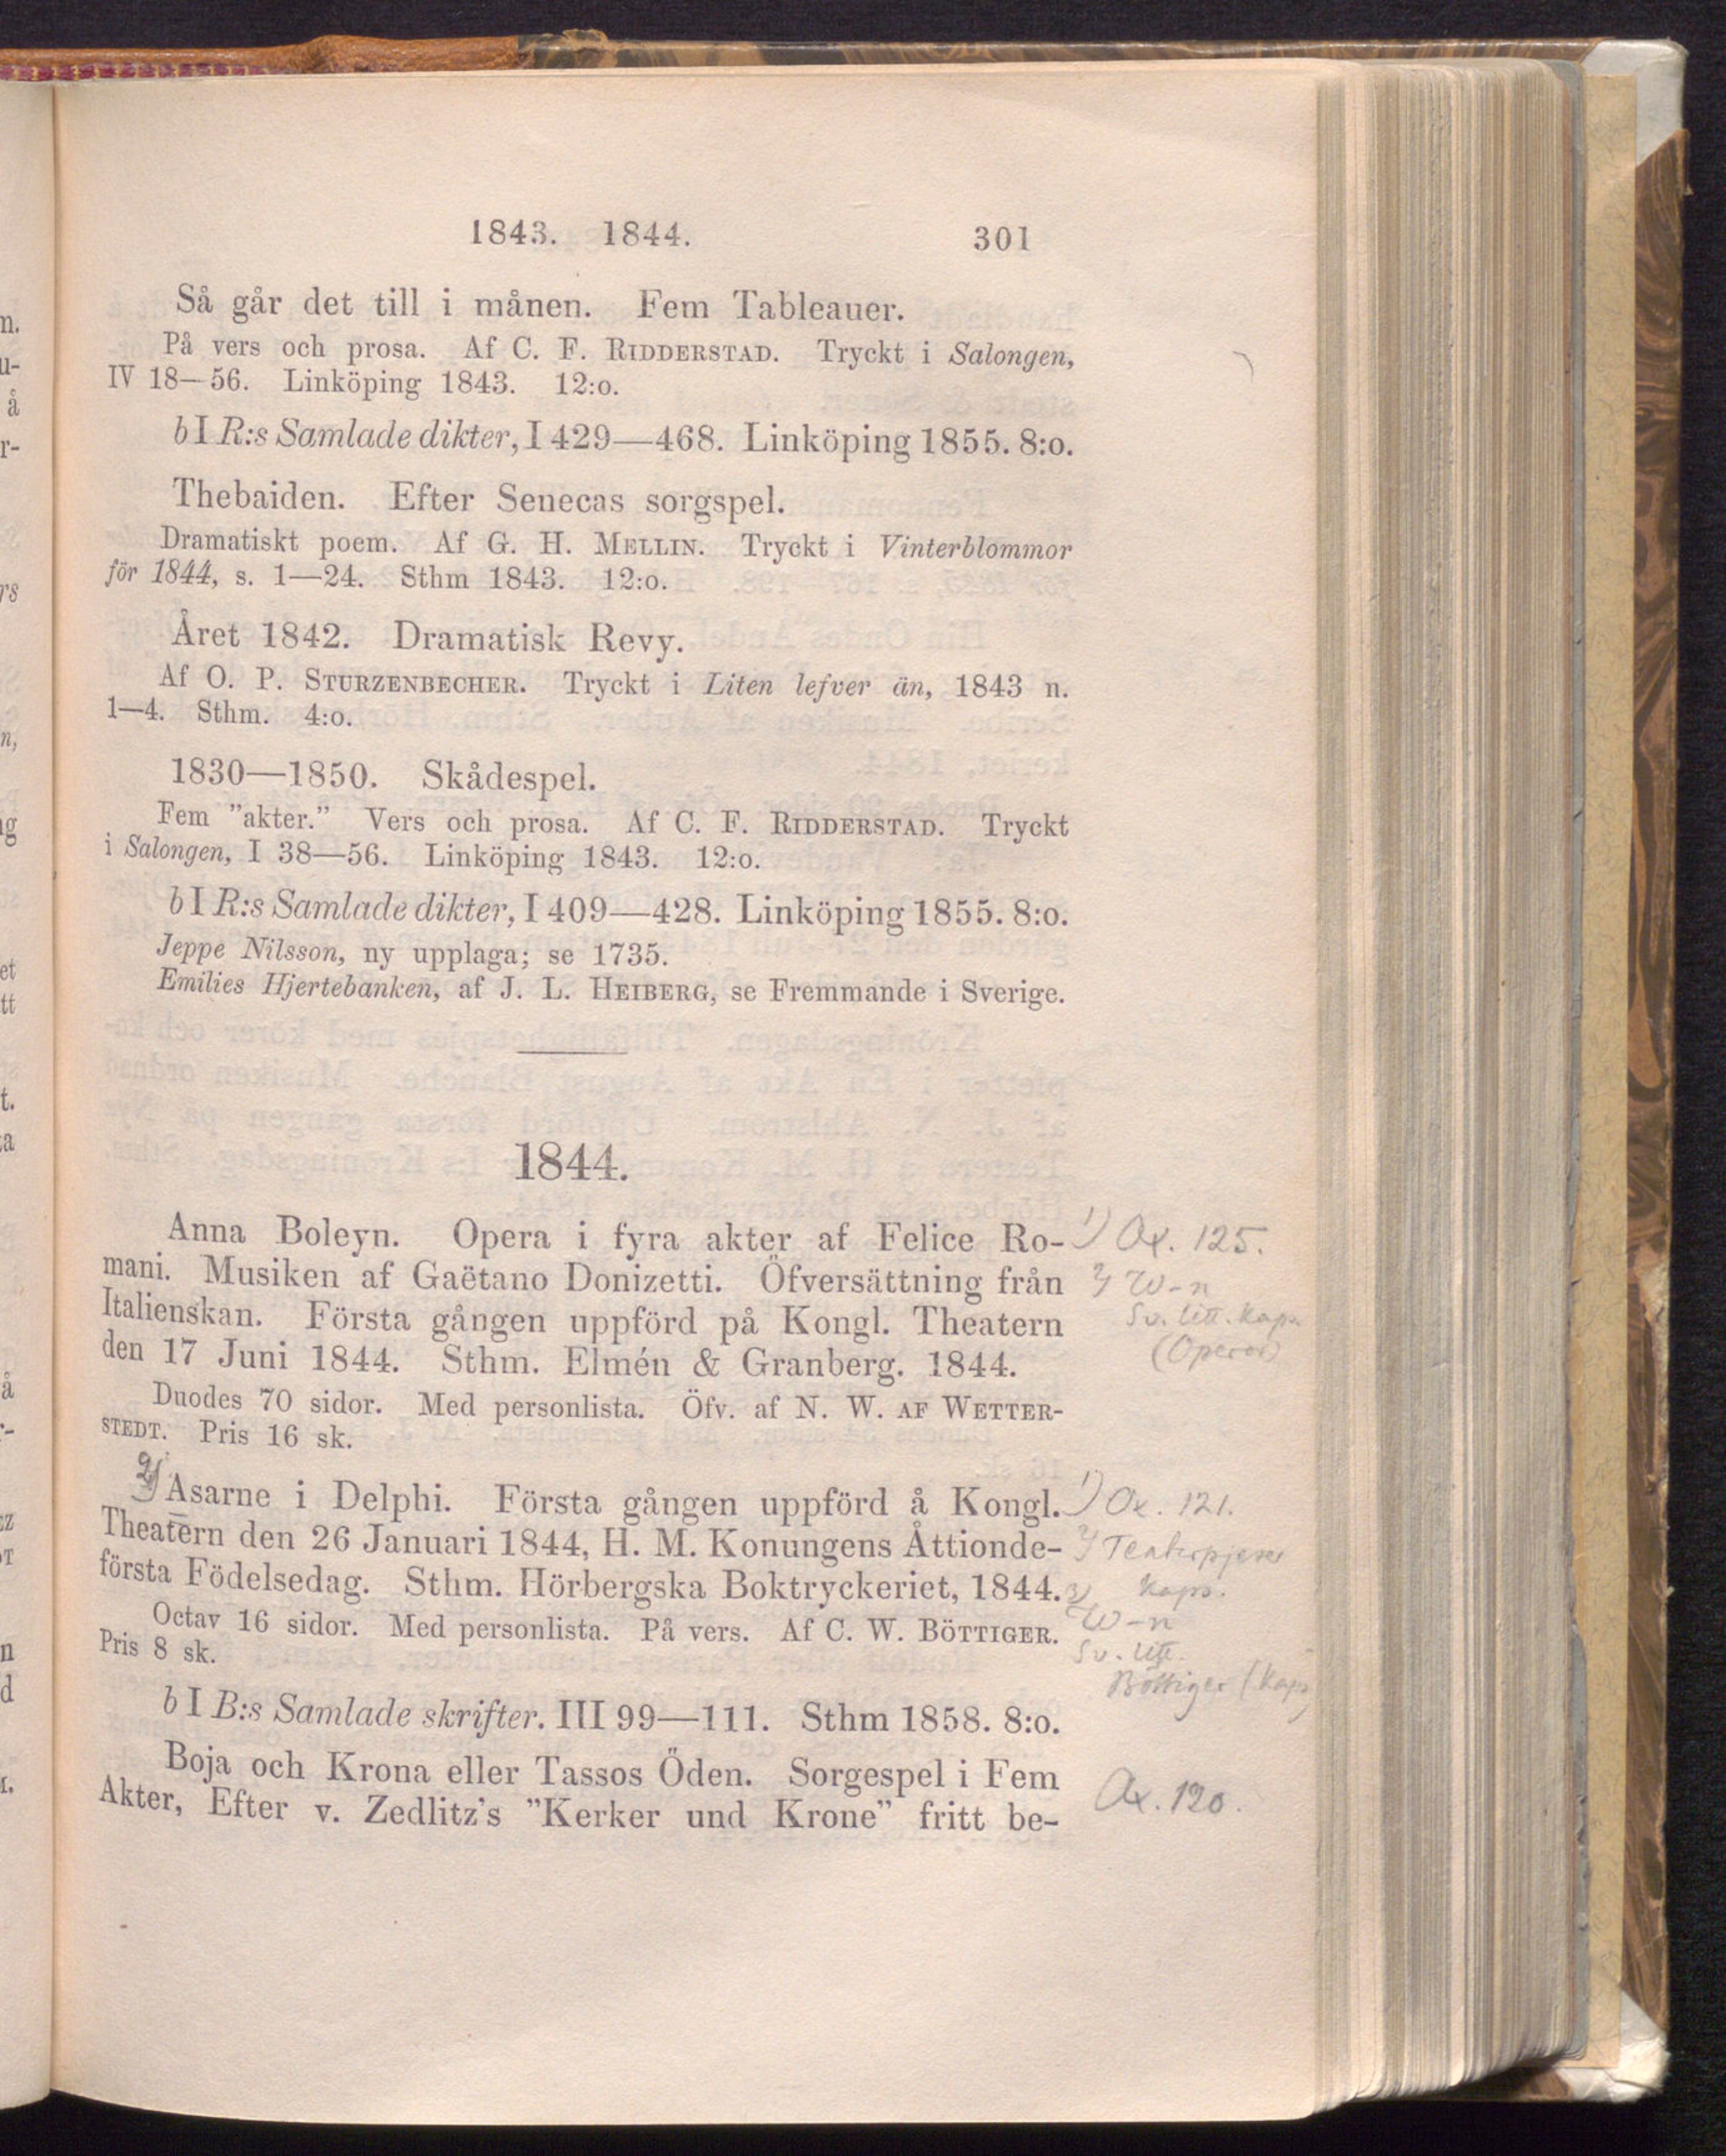 1843. 1844. 301
Så går det till i månen. Fem Tableauer.
På vers och prosa. Af C. F. RIDDERSTAD. Tryckt i Salongen,
IV 18—56. Linköping 1843. 12:o.
b I R:s Samlade dikter, I 429—468. Linköping 1855. 8:o.
Thebaiden. Efter Senecas sorgspel.
Dramatiskt poem. Af G. H. MELLIN. Tryckt i Vinterblommor
för 1844, s. 1—24. Sthm 1843. 12:o.
Året 1842. Dramatisk Revy.
Af O. P. STURZENBECHER. Tryckt i Liten lefver än, 1843 n.
1—4. Sthm. 4:o.
1830—1850. Skådespel.
Fem "akter." Vers och prosa. Af C. F. RIDDERSTAD. Tryckt
i Salongen, I 38—56. Linköping 1843. 12:o.
b I R:s Samlade dikter, I 409—428. Linköping 1855. 8:o.
Jeppe Nilsson, ny upplaga; se 1735.
Emilies Hjertebanken, af J. L. HEIBERG, se Fremmande i Sverige.
1844.
Anna Boleyn. Opera i fyra akter af Felice Ro- 1) Ox. 125.
mani. Musiken af Gaëtano Donizetti. Öfversättning från 2) W-n
Italienskan. Första gången uppförd på Kongl. Theatern Sv. litt. Kaps.
den 17 Juni 1844. Sthm. Elmén & Granberg. 1844. (Operor)
Duodes 70 sidor. Med personlista. Öfv. af N. W. AF WETTER-
STEDT. Pris 16 sk.
2) Asarne i Delphi. Första gången uppförd å Kongl. 1) Ox. 121.
Theatern den 26 Januari 1844, H. M. Konungens Åttionde- 2) Teaterpjeser
första Födelsedag. Sthm. Hörbergska Boktryckeriet, 1844. 3) Kaps.
W-n
Octav 16 sidor. Med personlista. På vers. Af C. W. BÖTTIGER. Sv. litt.
Pris 8 sk. Böttiger (Kaps)
b I B:s Samlade skrifter. III 99—111. Sthm 1858. 8:o.
Boja och Krona eller Tassos Öden. Sorgespel i Fem Ox. 120.
Akter, Efter v. Zedlitz's "Kerker und Krone" fritt be-